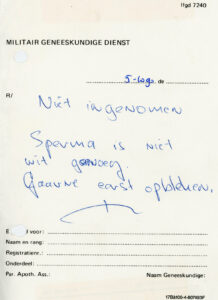 ffgd 7240
MILITAIR GENEESKUNDIGE DIENST
de
R/
Niet ingenomen
Sperma is niet
wit genoeg.
Gaarne eerst opbleken.
E voor:
Naam en rang:
Registratienr.:
Onderdeel:
Par. Apoth. Ass.: Naam Geneeskundige: